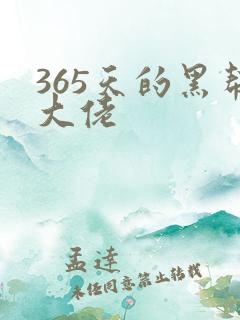 365天的黑帮
大佬
孟達
未任同意禁止轉載